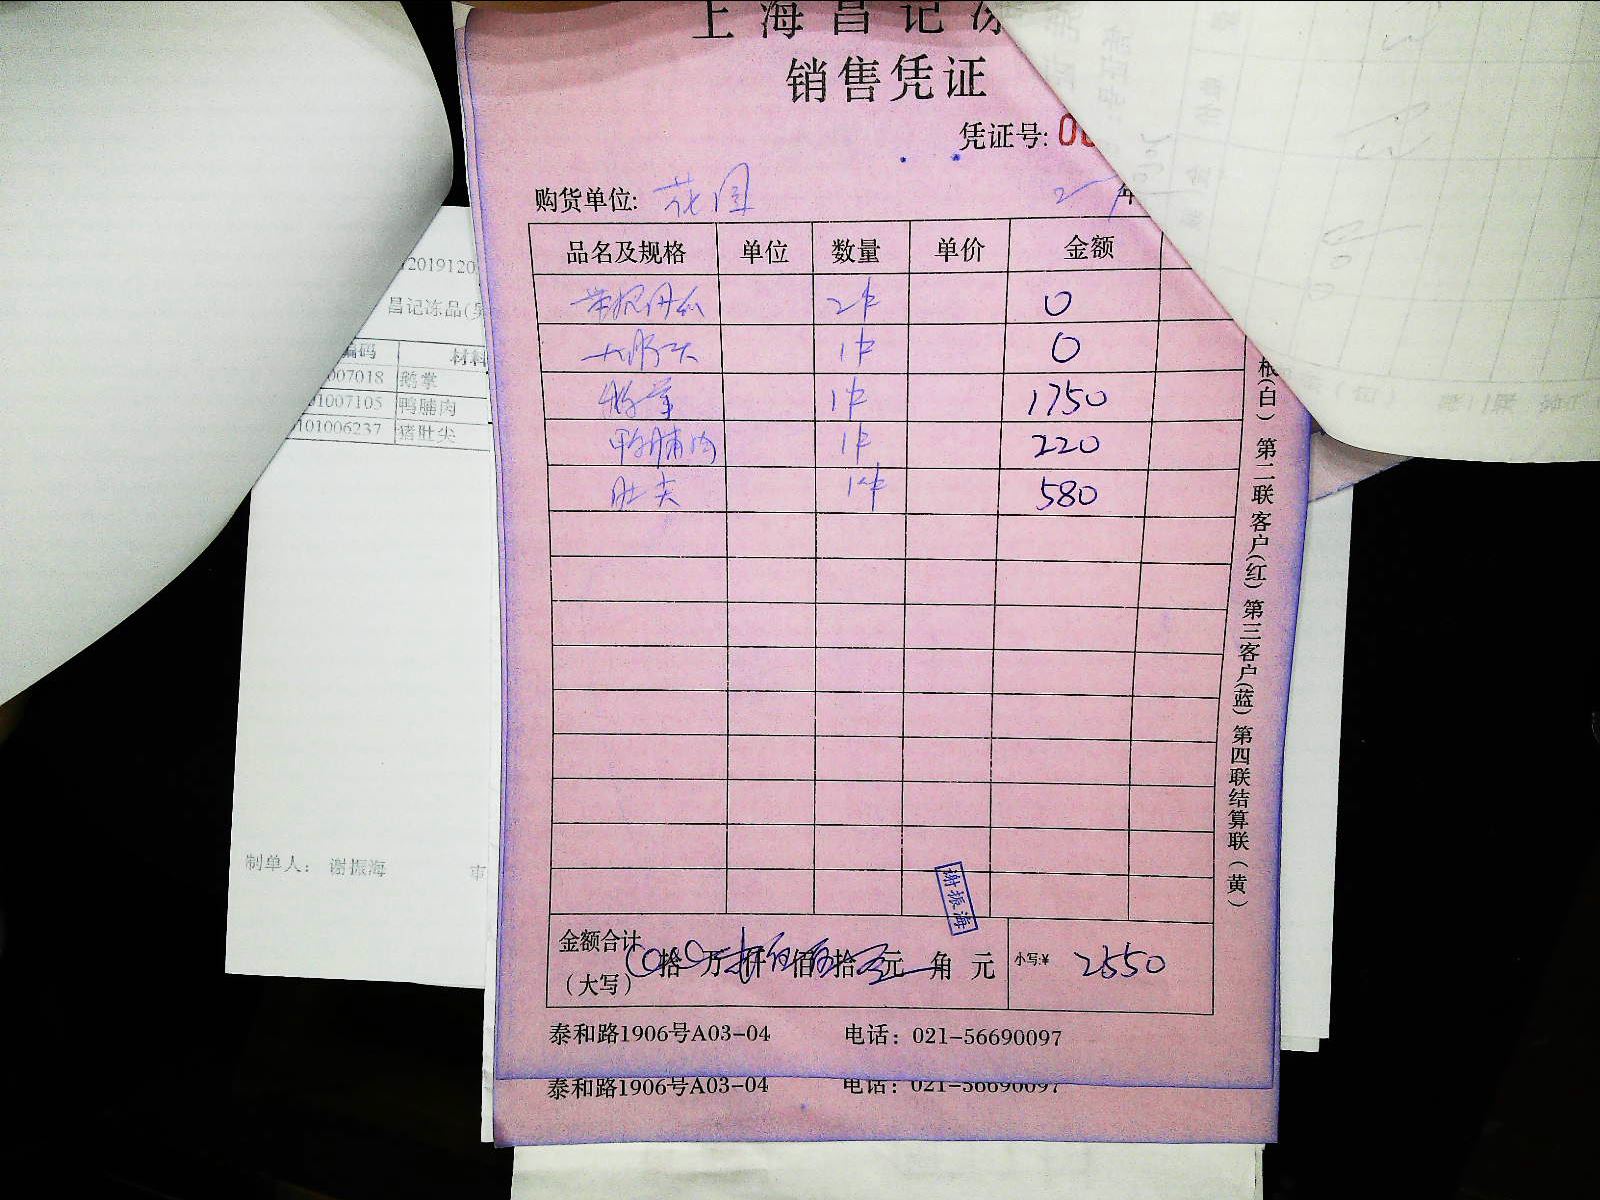 上海昌记冻
销售凭证
凭证号:
购货单位: 花园 年
品名及规格 单位 数量 单价 金额
2件 0
1件 0
鹅掌 1件 1750
鸭脯肉 1件 220
肚尖 1件 580
金额合计
(大写) 拾 万 仟 佰 拾 元 角 元 小写:¥ 2550
泰和路1906号A03-04 电话: 021-56690097
泰和路1906号A03-04 电话: 021-56690097
谢振海
根(白) 第二联客户(红) 第三客户(蓝) 第四联结算联(黄)
昌记冻品(
编码 材料
007018 鹅掌
01007105 鸭脯肉
101006237 猪肚尖
制单人: 谢振海 审